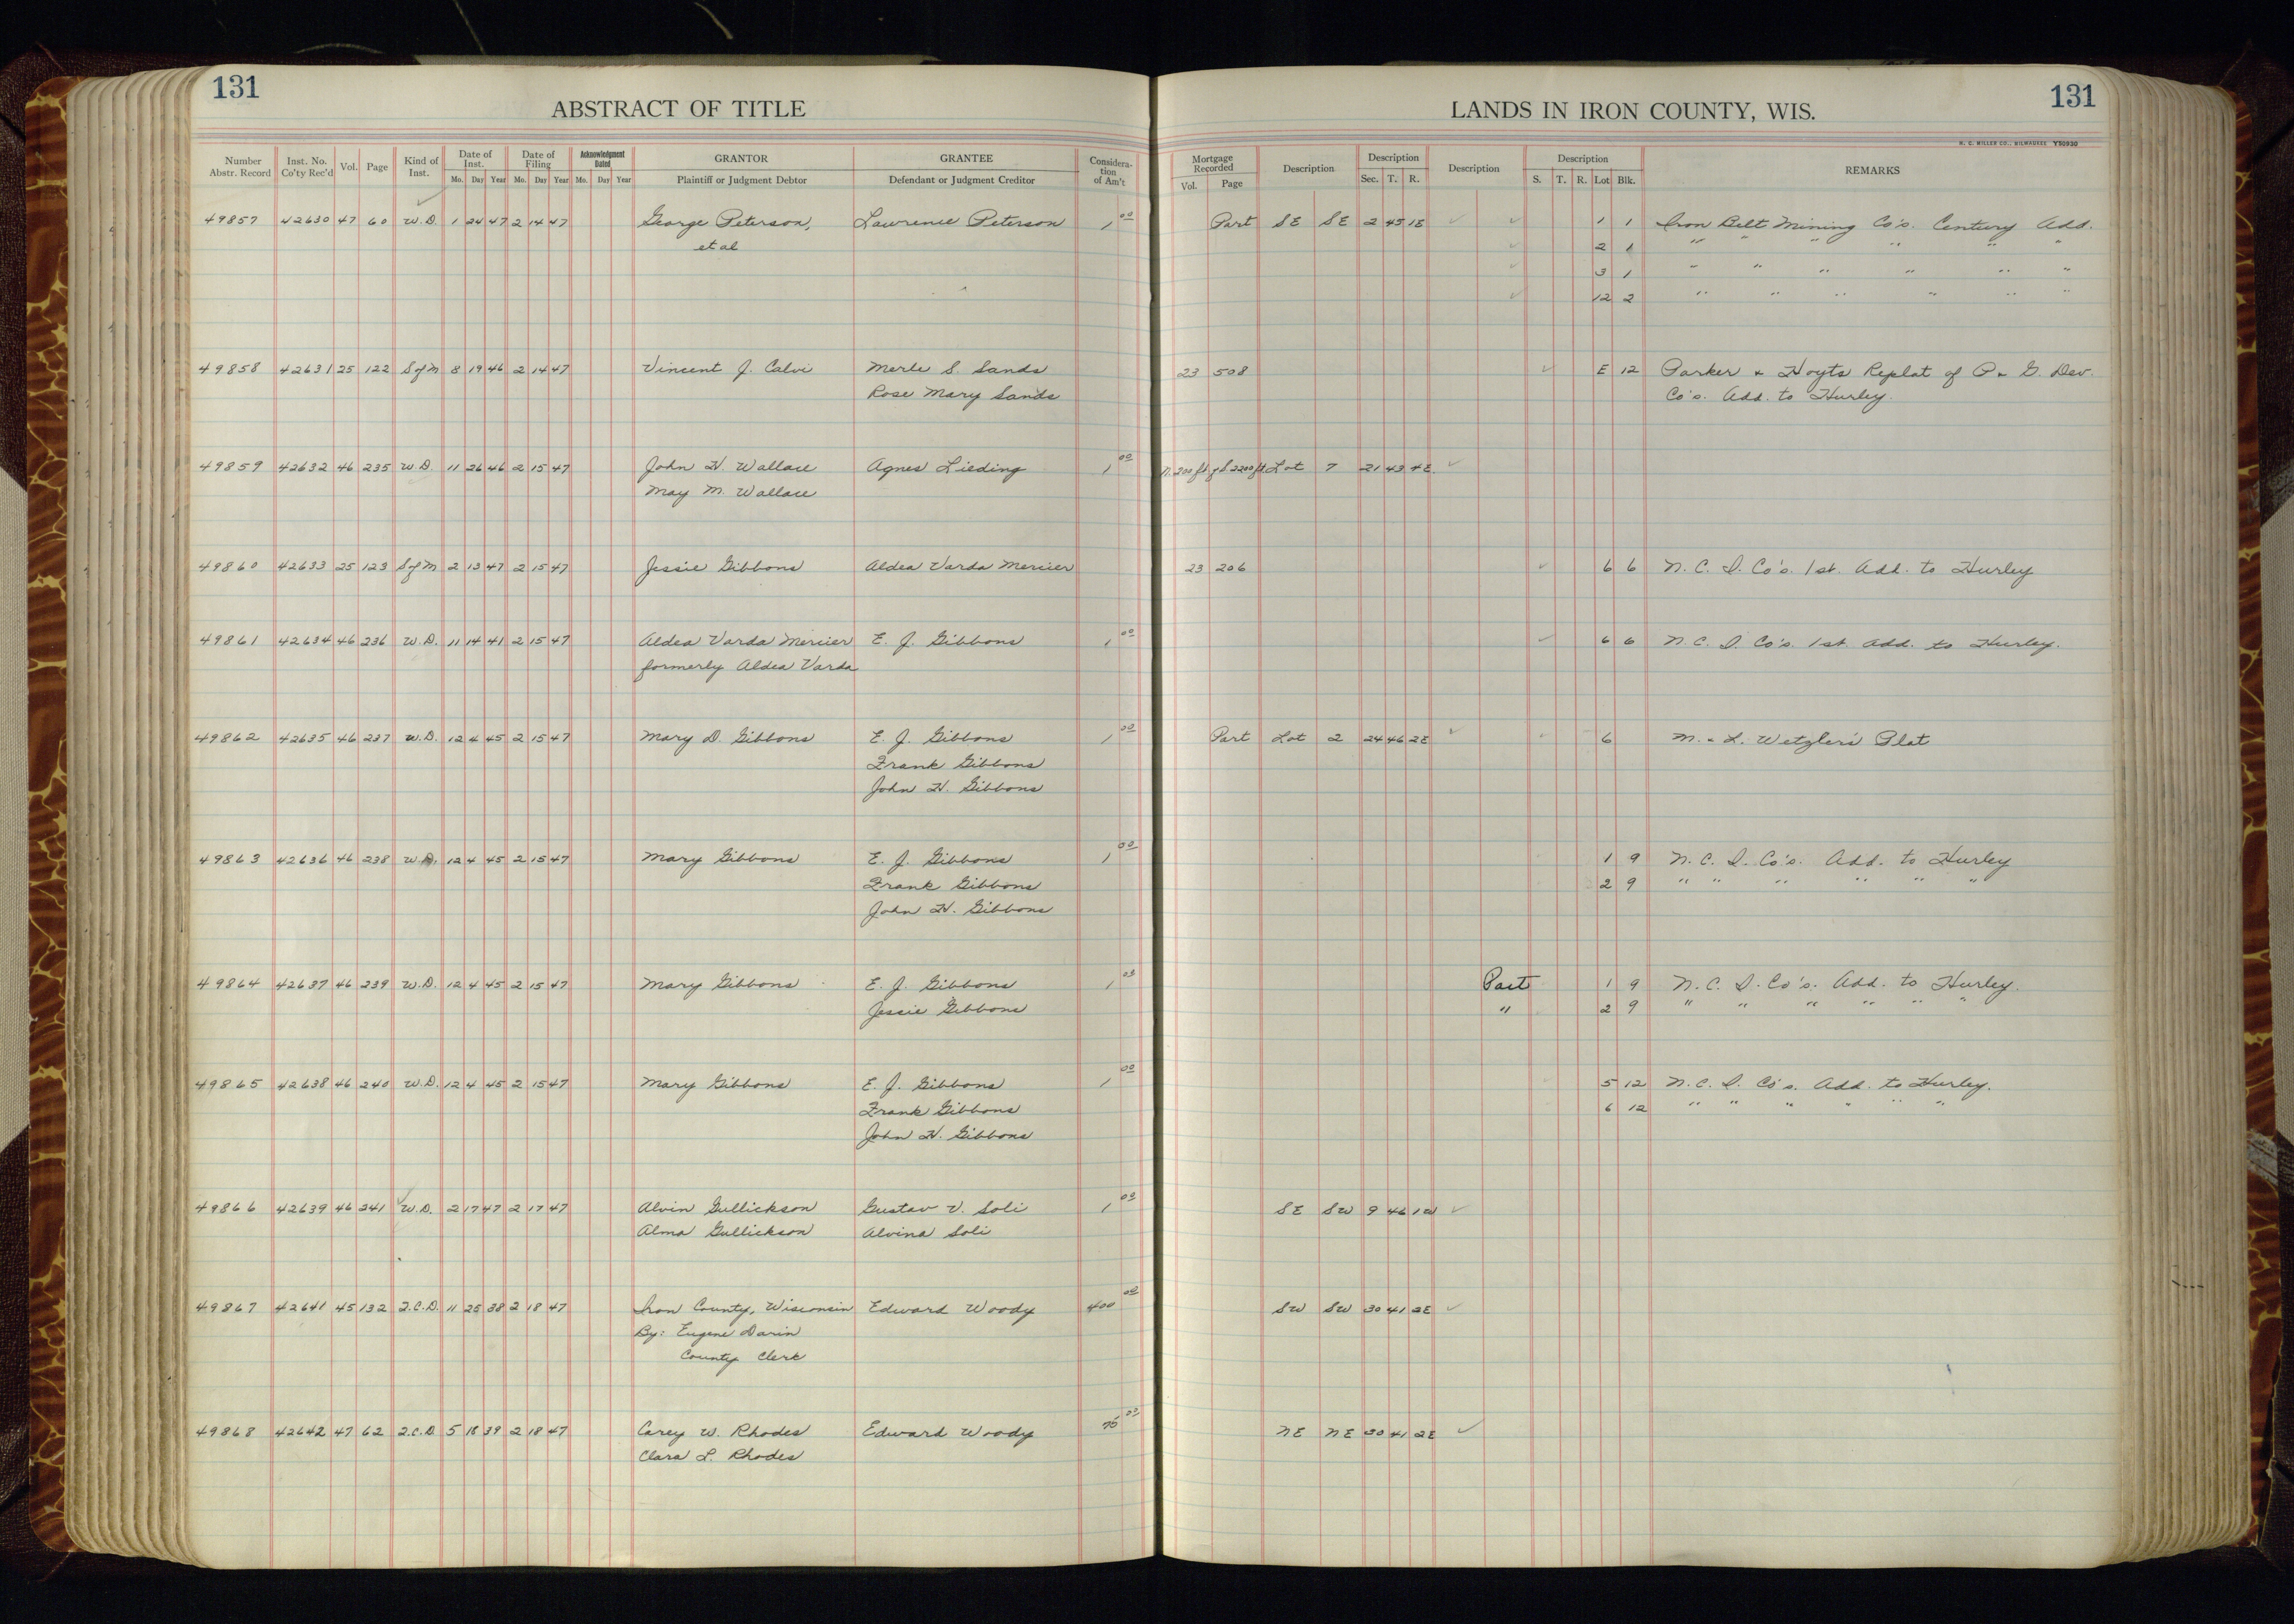 131
ABSTRACT OF TITLE
LANDS IN IRON COUNTY, WIS.
131
H. C. MILLER CO., MILWAUKEE Y50930
Number Abstr. Record Inst. No. Co'ty Rec'd Vol. Page Kind of Inst. Date of Inst. Mo. Day Year Date of Filing Mo. Day Year Acknowledgment Dated Mo. Day Year GRANTOR Plaintiff or Judgment Debtor GRANTEE Defendant or Judgment Creditor Considera-tion of Am't Mortgage Recorded Vol. Page Description Description Sec. T. R. Description Description S. T. R. Lot Blk. REMARKS
49857 42630 47 60 W.D. 1 24 47 2 14 47 George Peterson, Lawrence Peterson 1 00 Part SE SE 2 45 1E 1 1 Iron Belt Mining Co's. Century Add.
et al 2 1 " " " " " "
3 1 " " " " " "
12 2 " " " " " "
49858 42631 25 122 S of M 8 19 46 2 14 47 Vincent J. Calvi Merle S. Sands 23 508 E 12 Parker & Hoyts Replat of P & G. Dev.
Rose Mary Sands Co's. Add. to Hurley.
49859 42632 46 235 W.D. 11 26 46 2 15 47 John H. Wallace Agnes Lieding 1 00 N. 200 ft of S 2200 ft. Lot 7 21 43 4E.
May M. Wallace
49860 42633 25 123 S of M 2 13 47 2 15 47 Jessie Gibbons Aldea Varda Mercier 23 206 6 6 N. C. I. Co's. 1st. Add. to Hurley
49861 42634 46 236 W.D. 11 14 41 2 15 47 Aldea Varda Mercier E. J. Gibbons 1 00 6 6 N. C. I. Co's. 1st. Add. to Hurley.
formerly Aldea Varda
49862 42635 46 237 W.D. 12 4 45 2 15 47 Mary D. Gibbons E. J. Gibbons 1 00 Part Lot 2 24 46 2E 6 M. & L. Wetzler's Plat
Frank Gibbons
John H. Gibbons
49863 42636 46 238 W.D. 12 4 45 2 15 47 Mary Gibbons E. J. Gibbons 1 00 1 9 N. C. I. Co's. Add. to Hurley
Frank Gibbons 2 9 " " " " " "
John H. Gibbons
49864 42637 46 239 W.D. 12 4 45 2 15 47 Mary Gibbons E. J. Gibbons 1 00 Part 1 9 N. C. I. Co's. Add. to Hurley.
Jessie Gibbons " 2 9 " " " " " "
49865 42638 46 240 W.D. 12 4 45 2 15 47 Mary Gibbons E. J. Gibbons 1 00 5 12 N. C. I. Co's. Add. to Hurley.
Frank Gibbons 6 12 " " " " " "
John H. Gibbons
49866 42639 46 241 W.D. 2 17 47 2 17 47 Alvin Gullickson Gustav V. Soli 1 00 SE SW 9 46 1W
Alma Gullickson Alvina Soli
49867 42641 45 132 Q.C.D. 11 25 38 2 18 47 Iron County, Wisconsin Edward Woody 400 00 SW SW 30 41 2E
By: Eugene Darin
County Clerk
49868 42642 47 62 Q.C.D 5 18 39 2 18 47 Carey W. Rhodes Edward Woody 75 00 NE NE 30 41 2E
Clara L. Rhodes